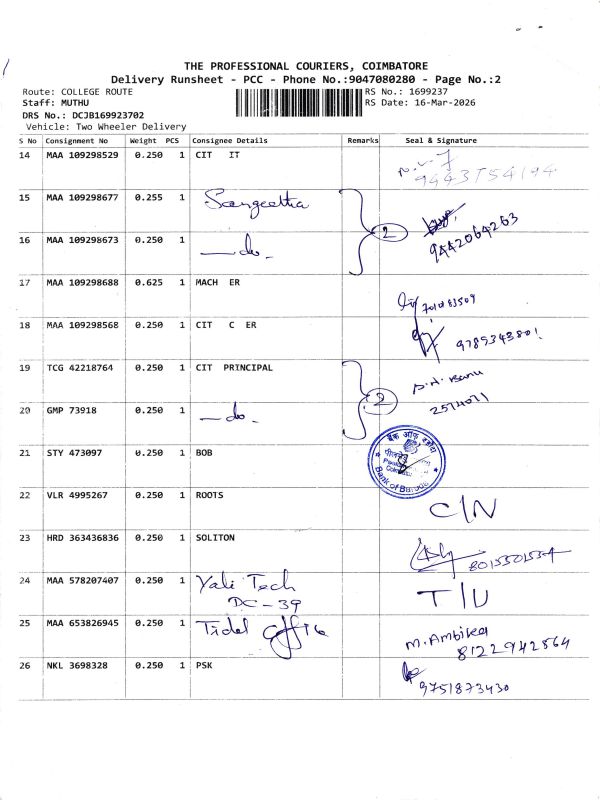 THE PROFESSIONAL COURIERS, COIMBATORE
Delivery Runsheet - PCC - Phone No.:9047080280 - Page No.:2
Route: COLLEGE ROUTE RS No.: 1699237
Staff: MUTHU RS Date: 16-Mar-2026
DRS No.: DCJB169923702
Vehicle: Two Wheeler Delivery
S No Consignment No Weight PCS Consignee Details Remarks Seal & Signature
14 MAA 109298529 0.250 1 CIT IT
15 MAA 109298677 0.255 1 Sangeetha
2 9442064263
16 MAA 109298673 0.250 1 —do-
17 MAA 109298688 0.625 1 MACH ER
18 MAA 109298568 0.250 1 CIT C ER
9789343801
19 TCG 42218764 0.250 1 CIT PRINCIPAL
2 2574071
20 GMP 73918 0.250 1 —do-
21 STY 473097 0.250 1 BOB
बैंक ऑफ बड़ौदा
Bank of Baroda
22 VLR 4995267 0.250 1 ROOTS C/N
23 HRD 363436836 0.250 1 SOLITON
24 MAA 578207407 0.250 1 Yali Tech T/U
DC-39
25 MAA 653826945 0.250 1 Tidel M. Ambika
8122942564
26 NKL 3698328 0.250 1 PSK
9751873430